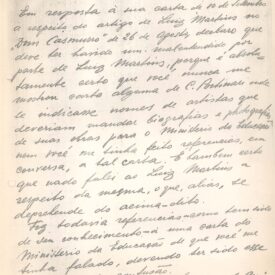 Em resposta à sua carta de 10 de setembro
a respeito do artigo de Luiz Martins no
"Dom Casmurro" de 26 de Agosto, declaro que
deve ter havido um malentendido por
parte de Luiz Martins, porque é absolu-
tamente certo que você nunca me
mostrou carta alguma de C. Portinari onde
se indicasse nomes de artistas que
deveriam mandar biografias e photografias
de suas obras para o Ministerio da Educação
nem você me tinha feito referencias, em
conversa, a tal carta. É tambem certo
que nada falei ao Luiz Martins a
respeito da mesma, o que, alias, se
depreende do acima-dito.
Fiz, todavia referencias
de seu conhecimento a uma carta do
Ministerio da Educação de que me
tinha falado, devendo ter sido esse